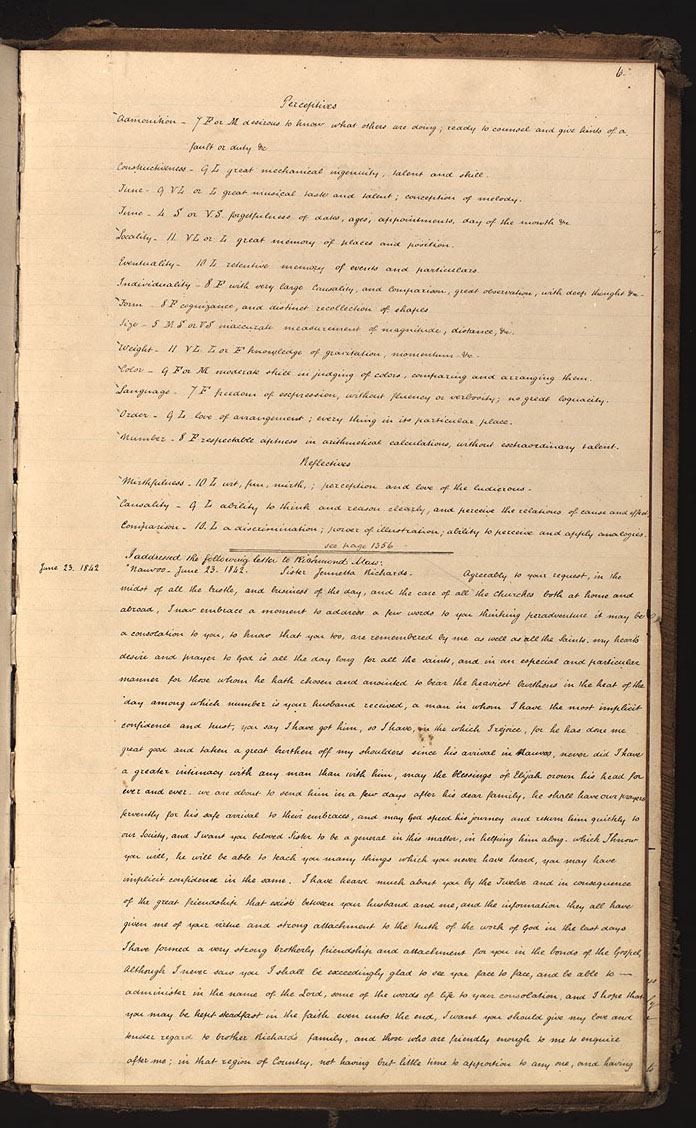 6.
Perceptives
"Admonition - 7 F or M desirous to know what others are doing; ready to counsel and give hints of a
fault or duty &c
Constructiveness - 9 L great mechanical ingenuity, talent and skill.
Tune - 9 VL or L great musical taste and talent; conception of melody.
Time - 4 S or V.S. forgetfulness of dates, ages, appointments, day of the month &c
"Locality - 11 VL or L great memory of places and position.
Eventuality - 10 L retentive memory of events and particulars.
Individuality - 8 F with very large Causality, and comparison, great observation, with deep thought &c-
"Form - 8 F cognizance, and distinct recollection of shapes
Size - 5 M.S or VS inaccurate measurement of magnitude, distance, &c.
"Weight - 11 VL. L or F knowledge of gravitation, momentum &c.
"Color - 9 F or M moderate skill in judging of colors, comparing and arranging them.
"Language - 7 F freedom of expression, without fluency or verbosity; no great loquacity.
"Order - 9 L love of arrangement; every thing in its particular place.
"Number - 8 F respectable aptness in arithmetical calculations, without extraordinary talent.
Reflectives
"Mirthfulness - 10 L wit, fun, mirth,; perception and love of the ludicrous.
"Causality - 9 L ability to think and reason clearly, and perceive the relations of cause and effect
Comparison - 10. L a discrimination; power of illustration; ability to perceive and apply analogies.
see page 1356
I addressed the following letter to Richmond Mass:
June 23. 1842 "Nauvoo - June 23. 1842. Sister Jennetta Richards. Agreeably to your request, in the
midst of all the bustle, and business of the day, and the care of all the Churches both at home and
abroad, I now embrace a moment to address a few words to you thinking peradventure it may be
a consolation to you, to know that you too, are remembered by me as well as all the Saints. my heart's
desire and prayer to God is all the day long for all the saints, and in an especial and particular
manner for those whom he hath chosen and anointed to bear the heaviest burthens in the heat of the
day among which number is your husband received, a man in whom I have the most implicit
confidence and trust, you say I have got him, so I have, in the which I rejoice, for he has done me
great good and taken a great burthen off my shoulders since his arrival in Nauvoo, never did I have
a greater intimacy with any man than with him, may the blessings of Elijah crown his head for
ever and ever. we are about to send him in a few days after his dear family, he shall have our prayers
fervently for his safe arrival to their embraces, and may God speed his journey and return him quickly to
our Society, and I want you beloved Sister to be a general in this matter, in helping him along. which I know
you will, he will be able to teach you many things which you never have heard, you may have
implicit confidence in the same. I have heard much about you by the Twelve and in consequence
of the great friendship that exists between your husband and me, and the information they all have
given me of your virtue and strong attachment to the truth of the work of God in the last days
I have formed a very strong brotherly friendship and attachment for you in the bonds of the Gospel,
Although I never saw you I shall be exceedingly glad to see you face to face, and be able to —
administer in the name of the Lord, some of the words of life to your consolation, and I hope that
you may be kept steadfast in the faith even unto the end, I want you should give my love and
tender regard to brother Richards family, and those who are friendly enough to me to enquire
after me; in that region of Country, not having but little time to apportion to any one, and having